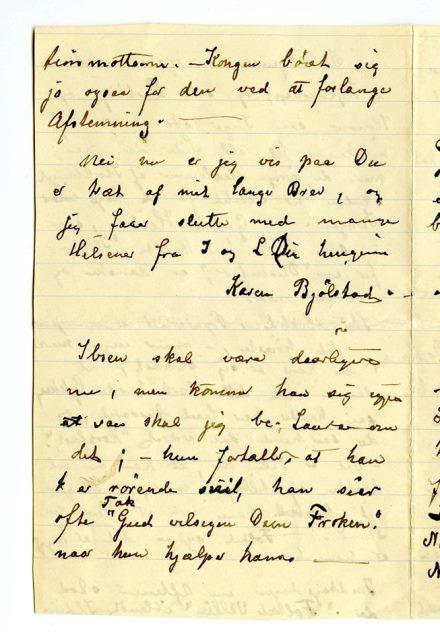 tionsmottoerne. – Kongen bøiet sig
jo ogsaa for den ved at forlange
Afstemning. —
Nei nu er jeg vis paa Du
er træt af mit lange Brev, og
jeg faar slutte med mange
Hilsener fra I og L Din hengivne
Karen Bjölstad. –
Ibsen skal være daarligere
nu, men kommer han sig igjen
saa skal jeg be Laura om
det; – hun fortalte, at han
er rörende snil, han siger
ofte "Tak Gud velsigne Dem Fröken."
naar hun hjælper ham. —